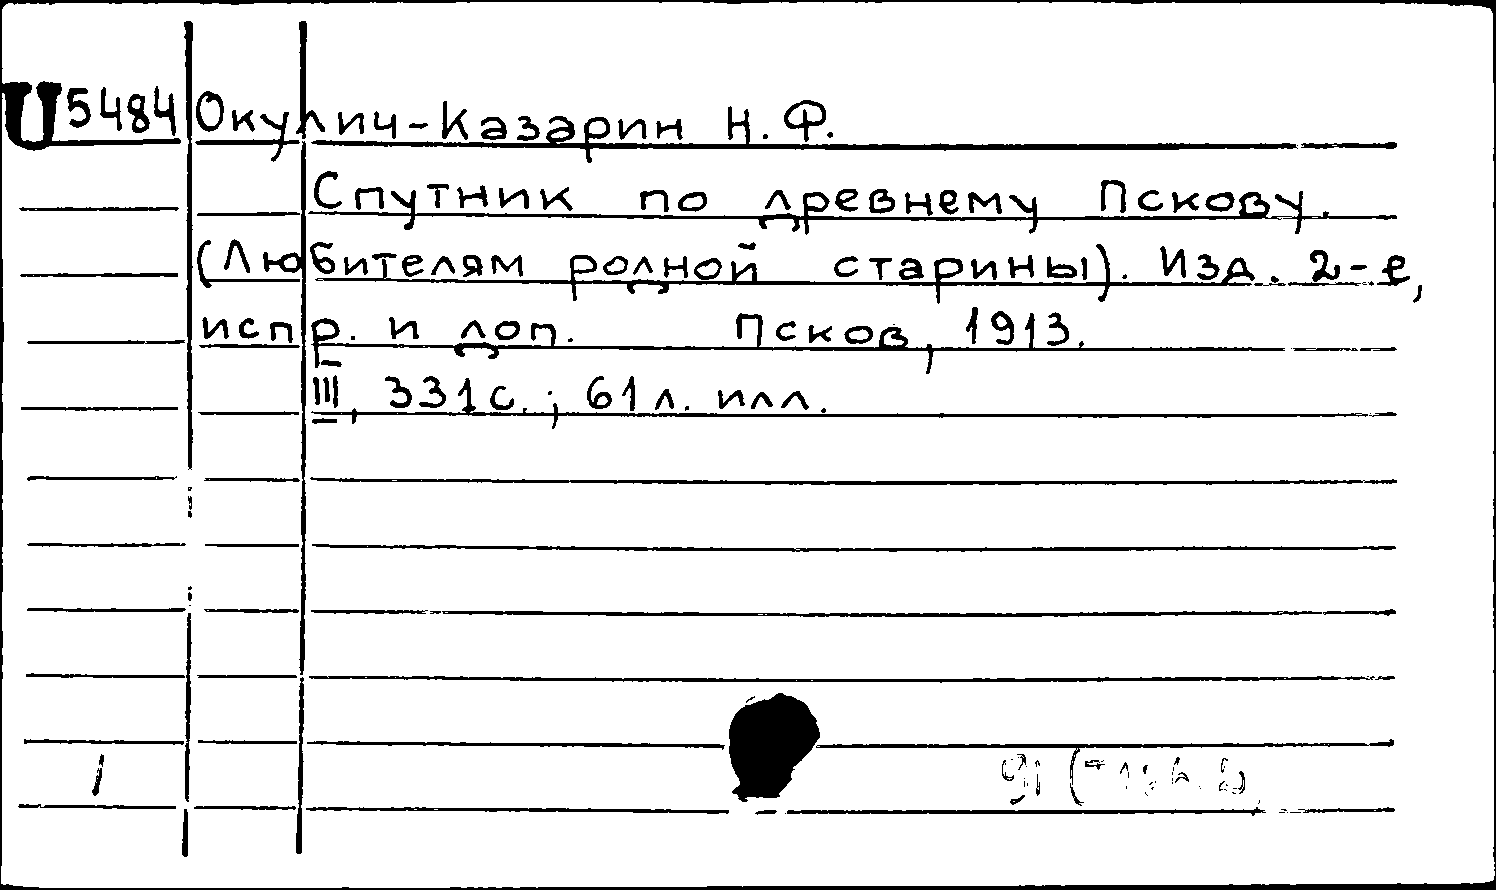 U 5484 Окулич-Казарин Н. Ф.
Спутник по древнему Пскову.
(Любителям родной старины). Изд. 2-е,
испр. и доп. Псков, 1913.
III, 331 с.; 61 л. илл.
1